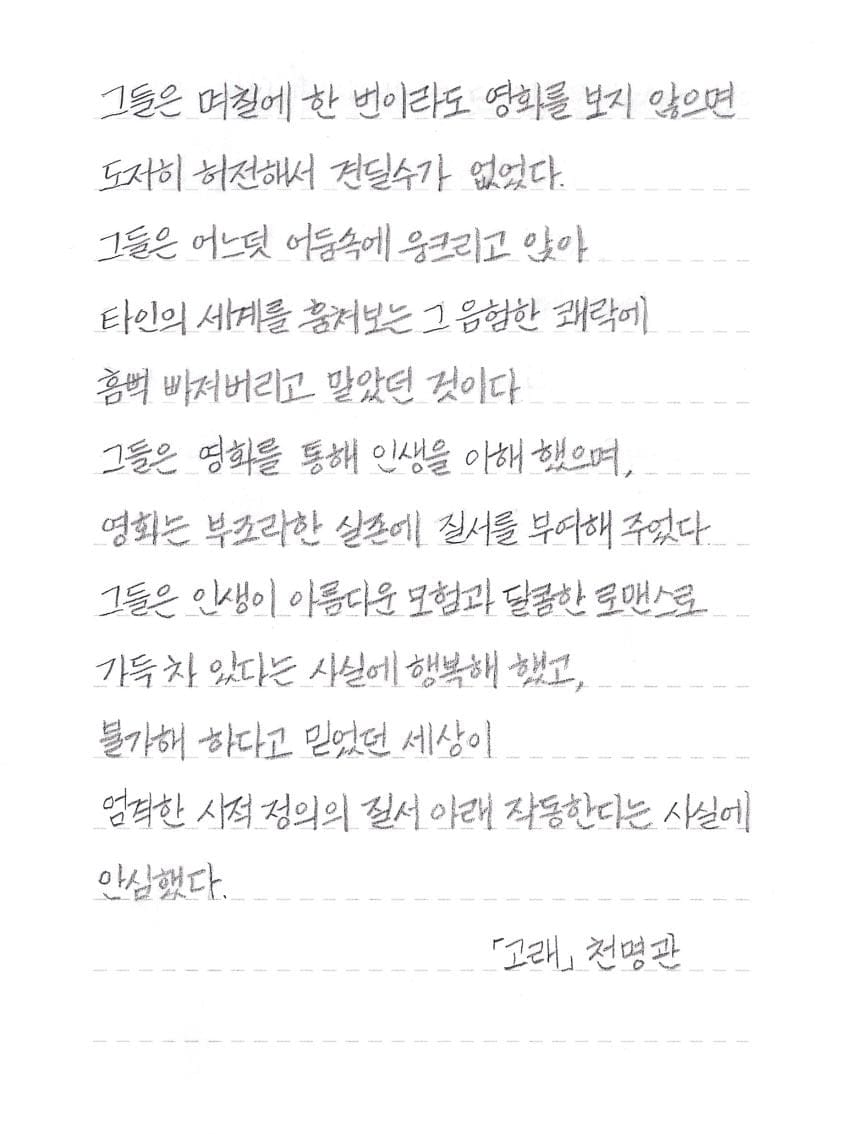 그들은 며칠에 한 번이라도 영화를 보지 않으면
도저히 허전해서 견딜수가 없었다.
그들은 어느덧 어둠속에 웅크리고 앉아
타인의 세계를 훔쳐보는 그 음험한 쾌락에
흠뻑 빠져버리고 말았던 것이다
그들은 영화를 통해 인생을 이해 했으며,
영화는 부조리한 실존에 질서를 부여해 주었다.
그들은 인생이 아름다운 모험과 달콤한 로맨스로
가득 차 있다는 사실에 행복해 했고,
불가해 하다고 믿었던 세상이
엄격한 시적 정의의 질서 아래 작동한다는 사실에
안심했다.
「고래」 천명관